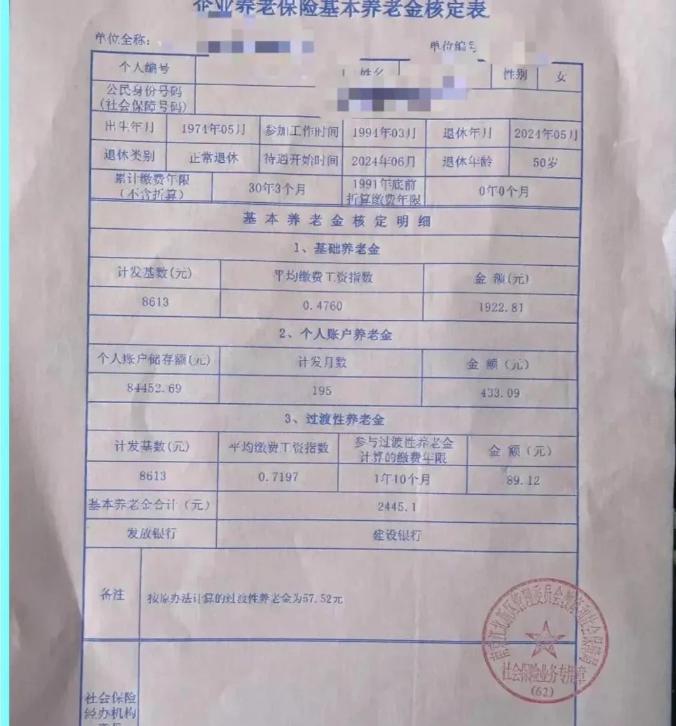 企业养老保险基本养老金核定表
单位全称：
单位编号
个人编号
姓名
性别 女
公民身份号码
(社会保障号码)
出生年月 1974年05月 参加工作时间 1994年03月 退休年月 2024年05月
退休类别 正常退休 待遇开始时间 2024年06月 退休年龄 50岁
累计缴费年限
(不含折算)
30年3个月
1991年底前
折算缴费年限
0年0个月
基本养老金核定明细
1、基础养老金
计发基数(元) 平均缴费工资指数 金 额(元)
8613 0.4760 1922.81
2、个人账户养老金
个人账户储存额(元) 计发月数 金 额（元）
84452.69 195 433.09
3、过渡性养老金
计发基数(元) 平均缴费工资指数
参与过渡性养老金
计算的缴费年限
金 额（元）
8613 0.7197 1年10个月 89.12
基本养老金合计（元） 2445.1
发放银行 建设银行
备注 按原办法计算的过渡性养老金为57.52元
社会保险业务专用章
(62)
社会保险
经办机构